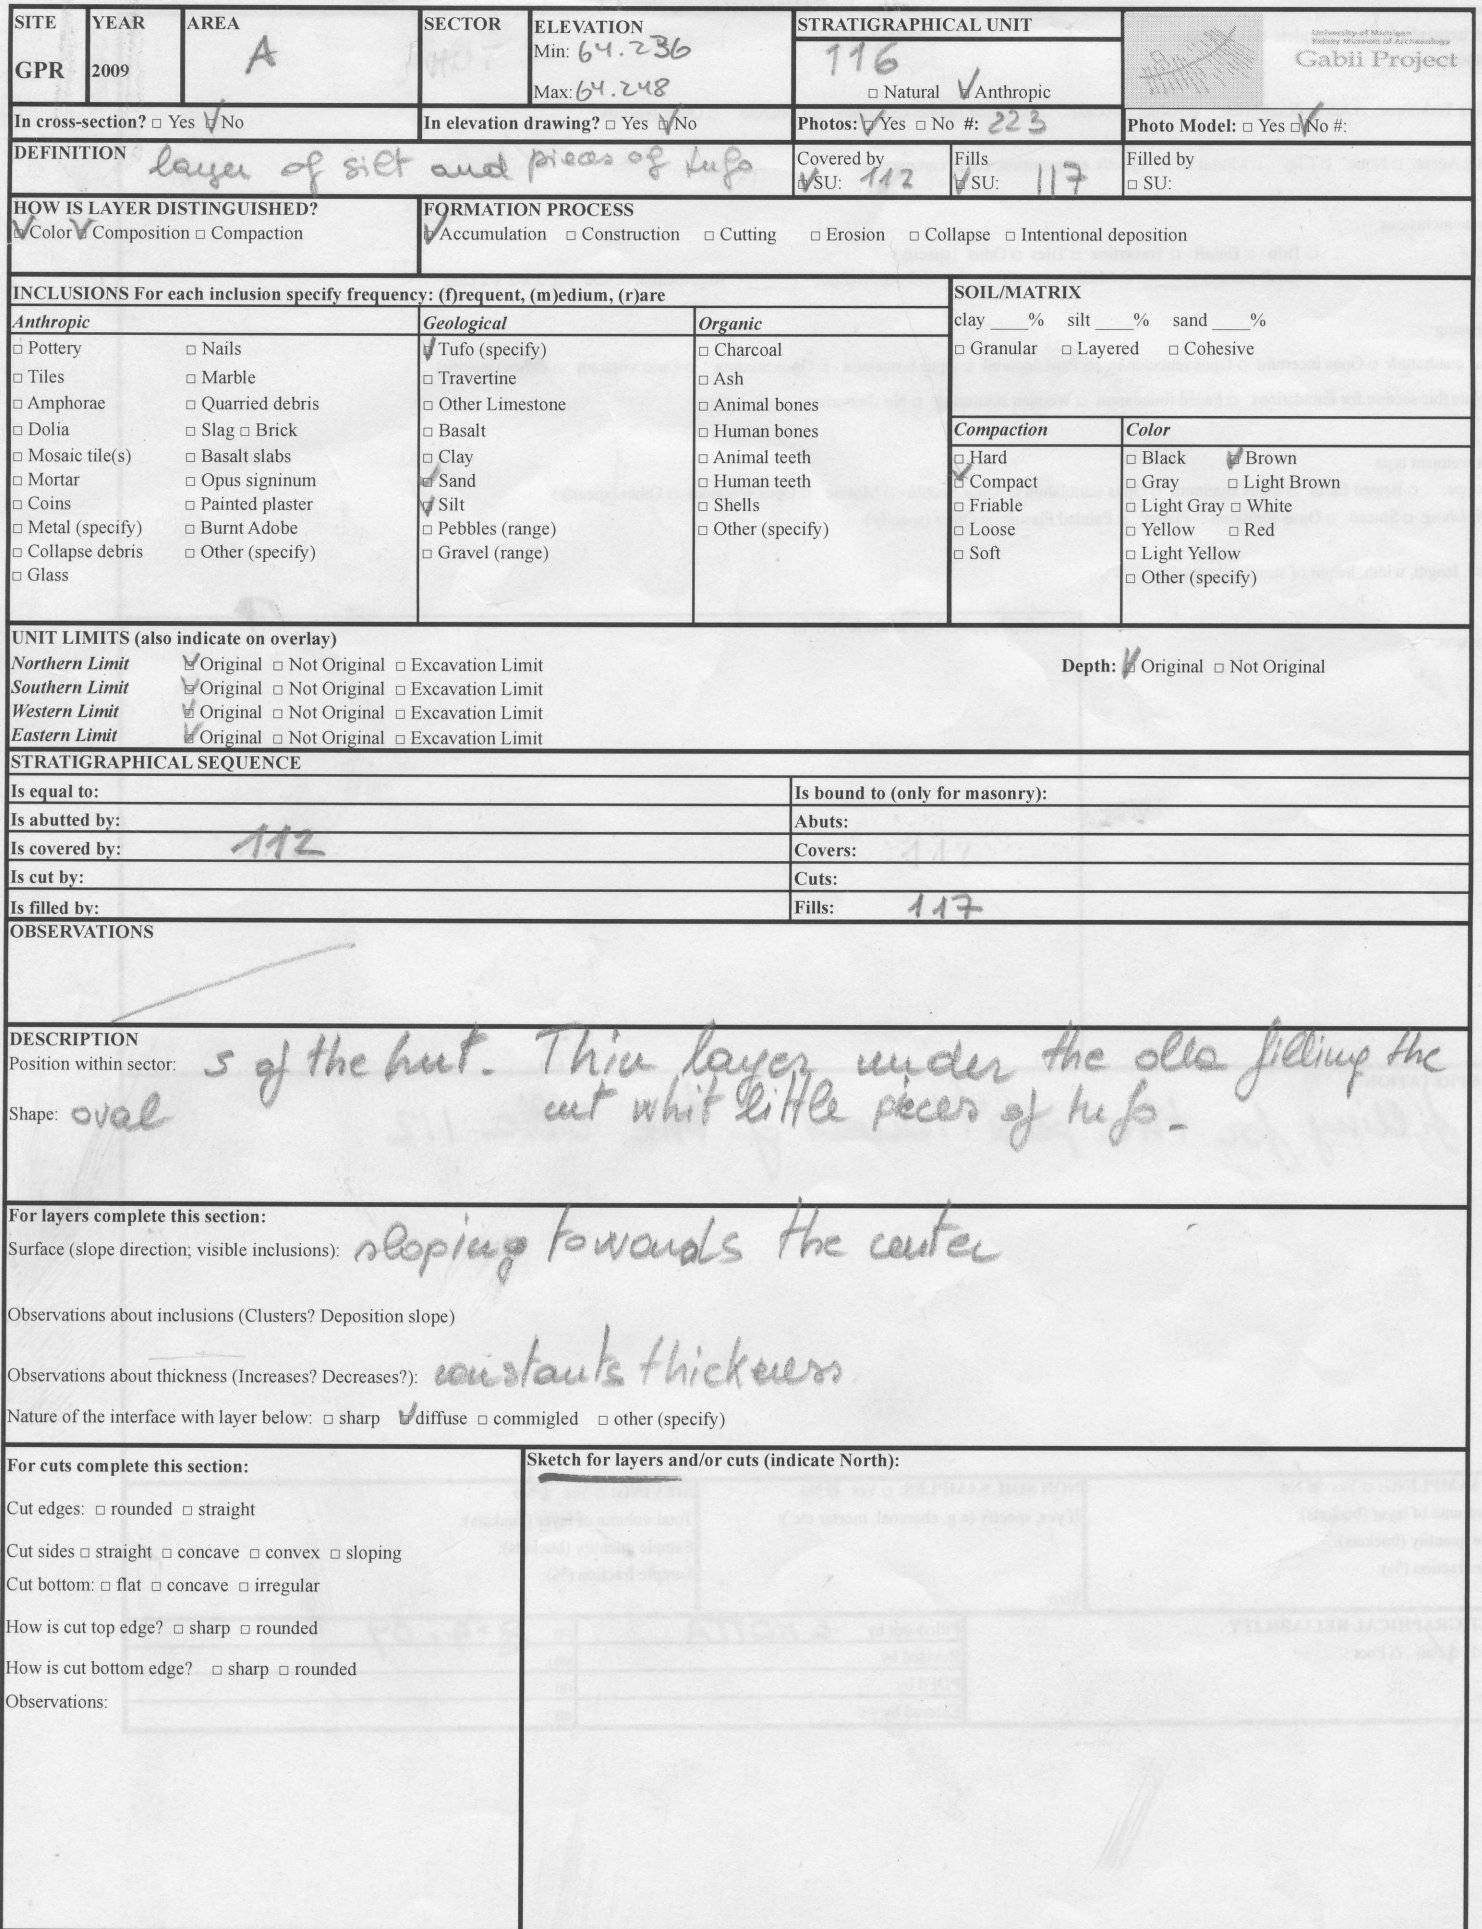 SITE YEAR AREA SECTOR ELEVATION STRATIGRAPHICAL UNIT
GPR 2009 A Min: 64.236 116
Max: 64.248 □ Natural ☑ Anthropic
University of Michigan
Kelsey Museum of Archaeology
Gabii Project
In cross-section? □ Yes ☑ No In elevation drawing? □ Yes ☑ No Photos: ☑ Yes □ No #: 223 Photo Model: □ Yes ☑ No #:
DEFINITION layer of silt and pieces of tufo
Covered by ☑ SU: 112
Fills ☑ SU: 117
Filled by □ SU:
HOW IS LAYER DISTINGUISHED?
☑ Color ☑ Composition □ Compaction
FORMATION PROCESS
☑ Accumulation □ Construction □ Cutting □ Erosion □ Collapse □ Intentional deposition
INCLUSIONS For each inclusion specify frequency: (f)requent, (m)edium, (r)are
Anthropic
□ Pottery □ Nails
□ Tiles □ Marble
□ Amphorae □ Quarried debris
□ Dolia □ Slag □ Brick
□ Mosaic tile(s) □ Basalt slabs
□ Mortar □ Opus signinum
□ Coins □ Painted plaster
□ Metal (specify) □ Burnt Adobe
□ Collapse debris □ Other (specify)
□ Glass
Geological
☑ Tufo (specify)
□ Travertine
□ Other Limestone
□ Basalt
□ Clay
☑ Sand
☑ Silt
□ Pebbles (range)
□ Gravel (range)
Organic
□ Charcoal
□ Ash
□ Animal bones
□ Human bones
□ Animal teeth
□ Human teeth
□ Shells
□ Other (specify)
SOIL/MATRIX
clay ____% silt ____% sand ____%
□ Granular □ Layered □ Cohesive
Compaction
□ Hard
☑ Compact
□ Friable
□ Loose
□ Soft
Color
□ Black ☑ Brown
□ Gray □ Light Brown
□ Light Gray □ White
□ Yellow □ Red
□ Light Yellow
□ Other (specify)
UNIT LIMITS (also indicate on overlay)
Northern Limit ☑ Original □ Not Original □ Excavation Limit Depth: ☑ Original □ Not Original
Southern Limit ☑ Original □ Not Original □ Excavation Limit
Western Limit ☑ Original □ Not Original □ Excavation Limit
Eastern Limit ☑ Original □ Not Original □ Excavation Limit
STRATIGRAPHICAL SEQUENCE
Is equal to: Is bound to (only for masonry):
Is abutted by: Abuts:
Is covered by: 112 Covers:
Is cut by: Cuts:
Is filled by: Fills: 117
OBSERVATIONS
DESCRIPTION
Position within sector: S of the hut. Thin layer under the olla filling the
Shape: oval cut whit little pieces of tufo-
For layers complete this section:
Surface (slope direction; visible inclusions): sloping towards the center
Observations about inclusions (Clusters? Deposition slope)
Observations about thickness (Increases? Decreases?): constants thickness
Nature of the interface with layer below: □ sharp ☑ diffuse □ commigled □ other (specify)
For cuts complete this section:
Cut edges: □ rounded □ straight
Cut sides □ straight □ concave □ convex □ sloping
Cut bottom: □ flat □ concave □ irregular
How is cut top edge? □ sharp □ rounded
How is cut bottom edge? □ sharp □ rounded
Observations:
Sketch for layers and/or cuts (indicate North):